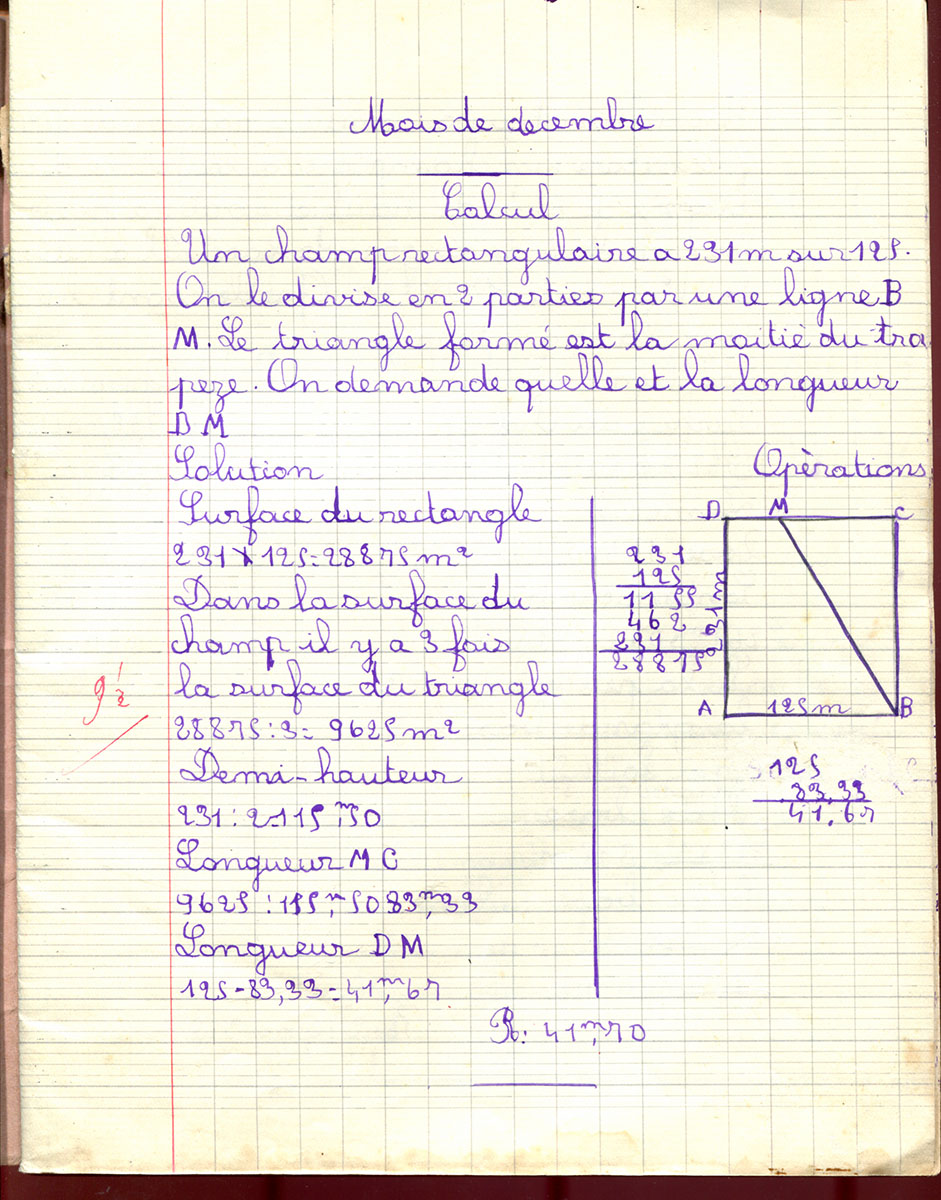 Mois de decembre
Calcul
Un champ rectangulaire a 231m sur 125.
On le divise en 2 parties par une ligne B
M. Le triangle formé est la moitié du tra
peze. On demande quelle et la longueur
D M
Solution
Opèrations
Surface du rectangle
231 x 125 = 28875 m²
Dans la surface du
champ il y a 3 fois
la surface du triangle
9 ½
28875 : 3 = 9625 m²
Demi-hauteur
231 : 2 = 115m,50
Longueur M C
9625 : 115,m50 83m,33
Longueur D M
125 - 83,33 = 41m,67
R: 41m,70
231
125
11 55
462
231
28875
D M C
231m
A 125m B
125
83,33
41,67